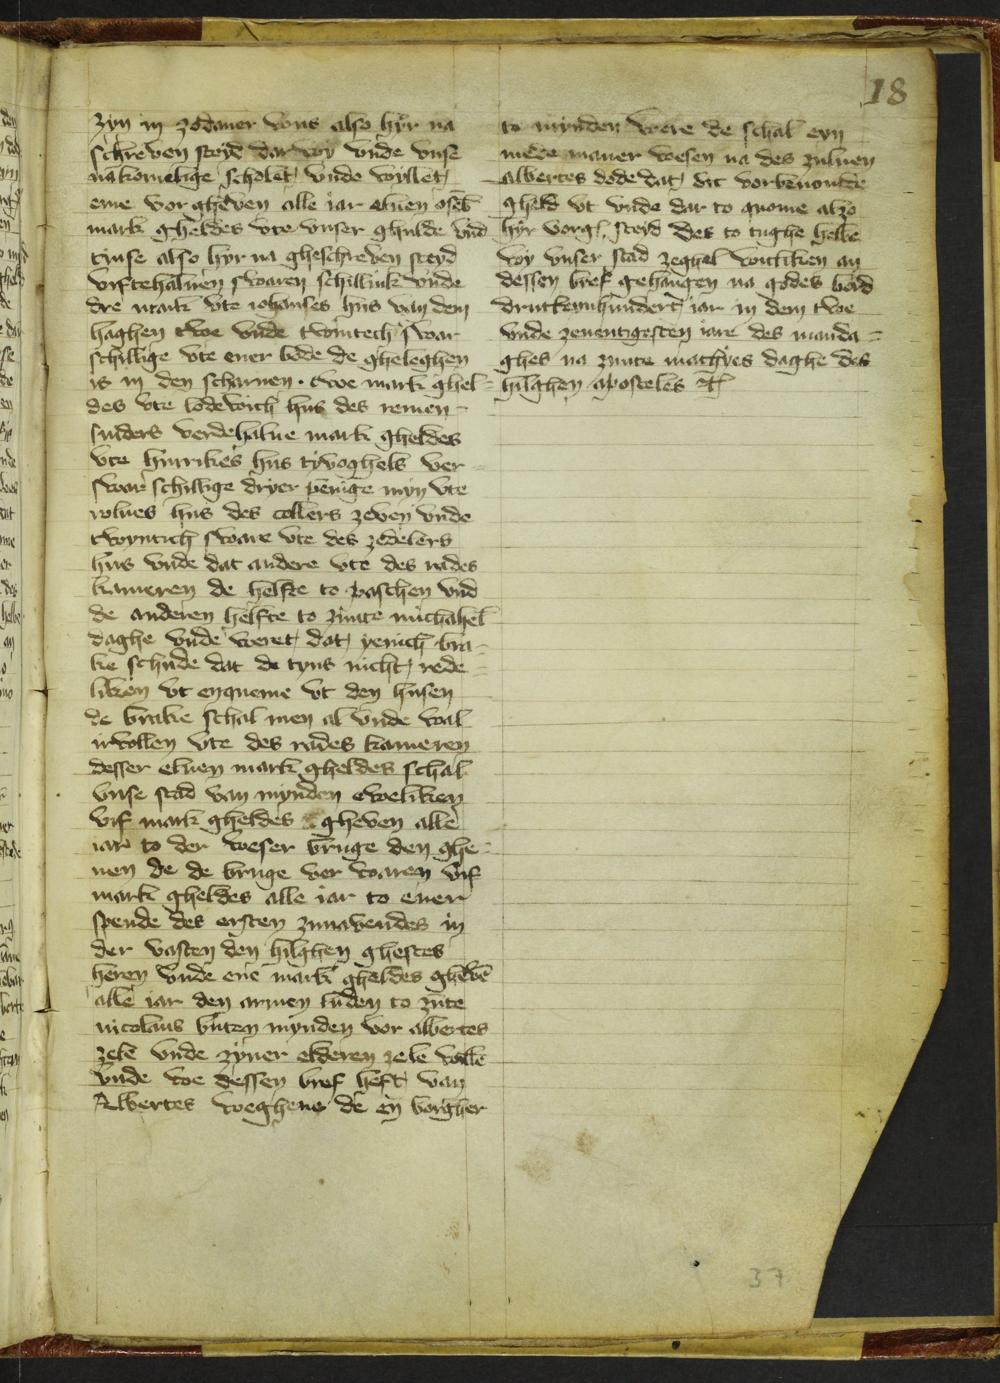 18
zyn in zodaner wys also hyr na
schreven steyd dar wy vnde vnse
nakomelige scholet vnde wyllet
eme vor gheven alle iar eluen oseb
mark gheldes vte vnser ghulde vnd
tynse also hyr na gheschreven steyd
vyftehaluen swaren schillink vnde
dre mark vte iohanses hus van dem
haghen twe vnde twintech swar
schillige vte ener bode de gheleghen
is in den scharnen. twe mark ghel=
des vte lodewich hus des remen=
sniders verdehalue mark gheldes
vte hinrikes hus tyvoghels ver
swar schillige dryer penige myn vte
rolues hus des collers zeven vnde
twyntich sware vte des zedelers
hus vnde dat andere vte des rades
kameren de helfte to paschen vnd
de anderen helfte to zinte michahel
daghe vnde weret dat yenich bra=
ke schude dat de tyns nicht rede=
liken vt enqueme vt den husen
de brake schal men al vnde wal
irvollen vte des rades kameren
desser eluen mark gheldes schal
vnse stad van mynden eweliken
vif mark gheldes gheven alle
iar to der weser bruge den ghe=
nen de de bruge ver waren vif
mark gheldes alle iar to ener
spende des ersten zunavendes in
der vasten den hilghen ghestes
heren vnde ene mark gheldes gheve
alle iar den armen luden to zute
nicolaus buten mynden vor albertes
zele vnde zyner elderen zele
vnde we dessen bref heft van
Albertes weghene de en borgher
to mynden were de schal eyn
mede maner wesen na des zuluen
albertes dode dat dit vorbenomde
gheld vt vnde dar to quome alzo
hyr vorg steyd des to tughe hebbe
wy vnser stad zeghel witliken an
dessen bref gehangen na godes bord
druttenhundert iar in dem twe
vnde zeuentigesten iare des manda=
ghes na zunte mathyes daghe des
hilghen aposteles
37